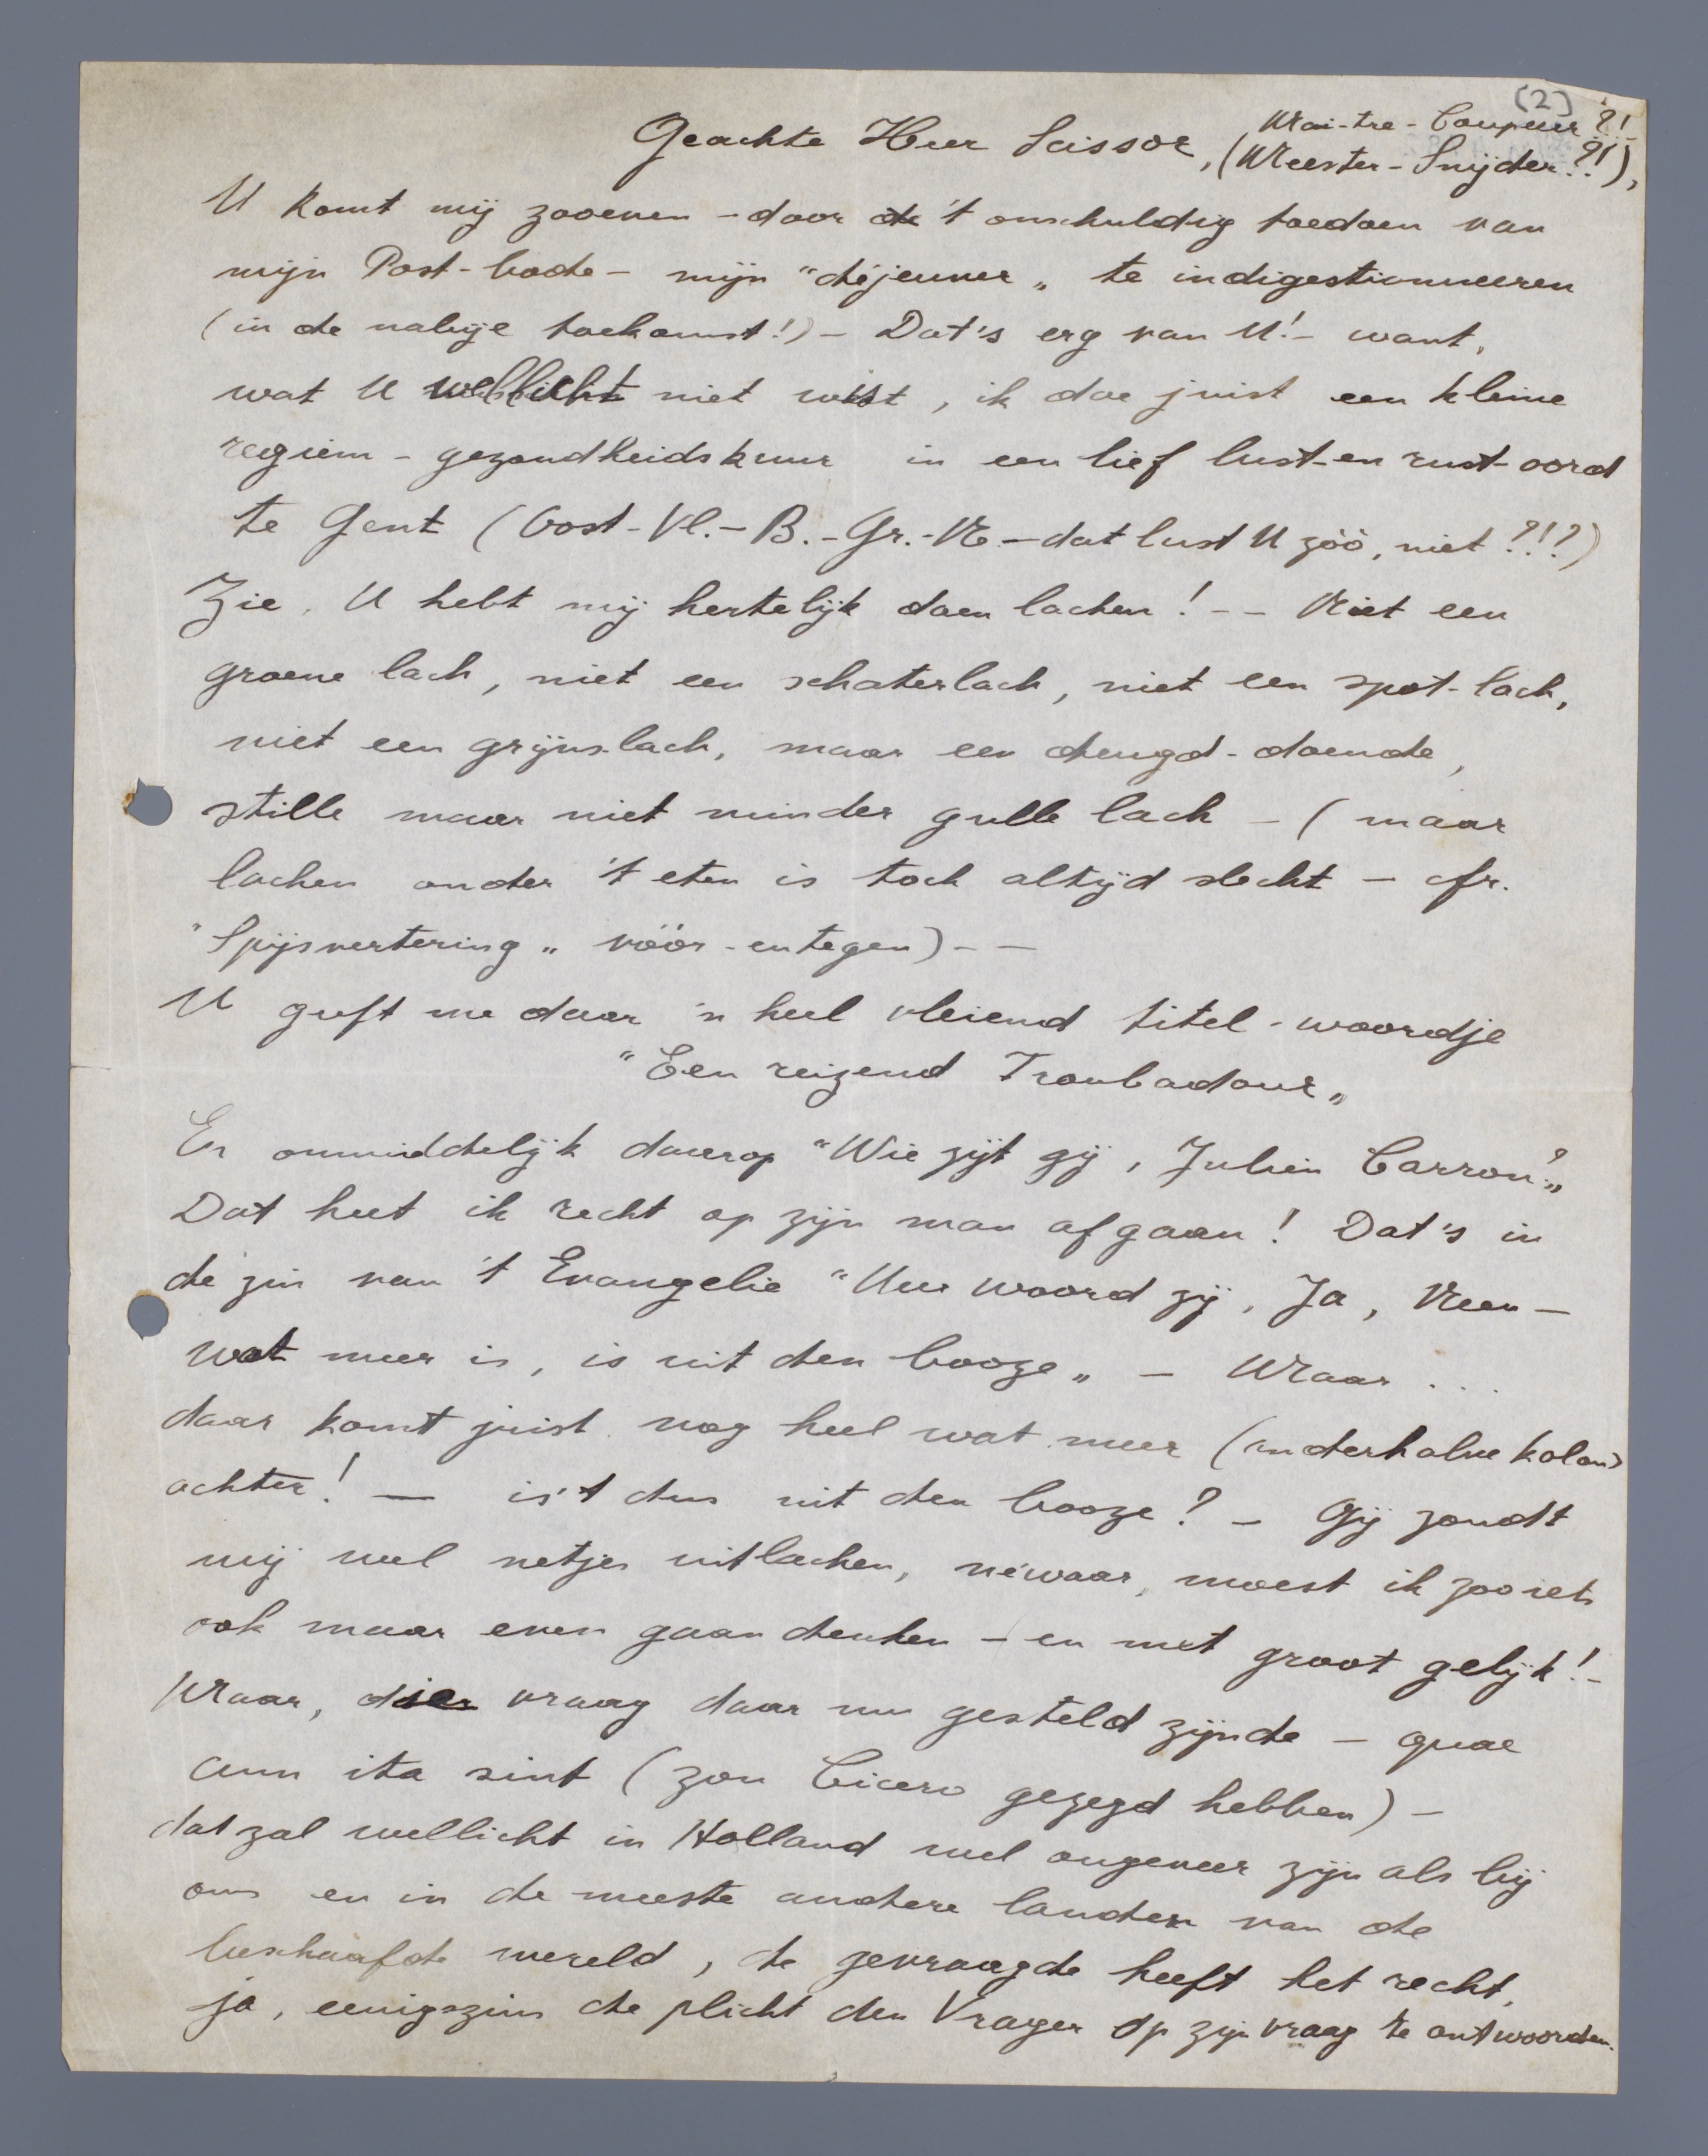 (2)
Geachte Heer Scissor, (Mai-tre-Coupeur?!
(Meester-Snijder?!),
U komt mij zooeven – door de 't onschuldig toedoen van
mijn Post-bode – mijn "déjeuner„ te indigestionneeren
(in de nabije toekomst!) – Dat's erg van U! – want,
wat U wellicht niet wist, ik doe juist een kleine
regiem-gezondheidskuur in een lief lust-en rust-oord
te Gent (Oost-Vl.-B.-Gr.-N. – dat lust U zóó, niet?!?)
Zie, U hebt mij hertelijk doen lachen! -- Niet een
groene lach, niet een schaterlach, niet een spot-lach,
niet een grijns-lach, maar een deugd-doende,
stille maar niet minder gulle lach – (maar
lachen onder 't eten is toch altijd slecht – cfr.
"Spijsvertering„ vóór-en tegen) - —
U geeft me daar 'n heel vleiend titel-woordje
"Een reizend Troubadour„
En onmiddelijk daarop "Wie zijt gij, Julien Carron?„
Dat heet ik recht op zijn man afgaan! Dat's in
de zin van 't Evangelie "Uw woord zij, Ja, Neen –
wat meer is, is uit den booze„ – Maar ...
daar komt juist nog heel wat meer (anderhalve kolom)
achter! — is't dus uit den booze? – Gij zoudt
mij wel netjes uitlachen, néwaar, moest ik zoo iets
ook maar even gaan denken – en met groot gelijk! -
Maar, die vraag daar nu gesteld zijnde – quae
cum ita sint (zou Cicero gezegd hebben) –
dat zal wellicht in Holland wel ongeveer zijn als bij
ons en in de meeste andere landen van de
beschaafde wereld, de gevraagde heeft het recht,
ja, eenigszins de plicht den Vrager op zijn vraag te antwoorden.